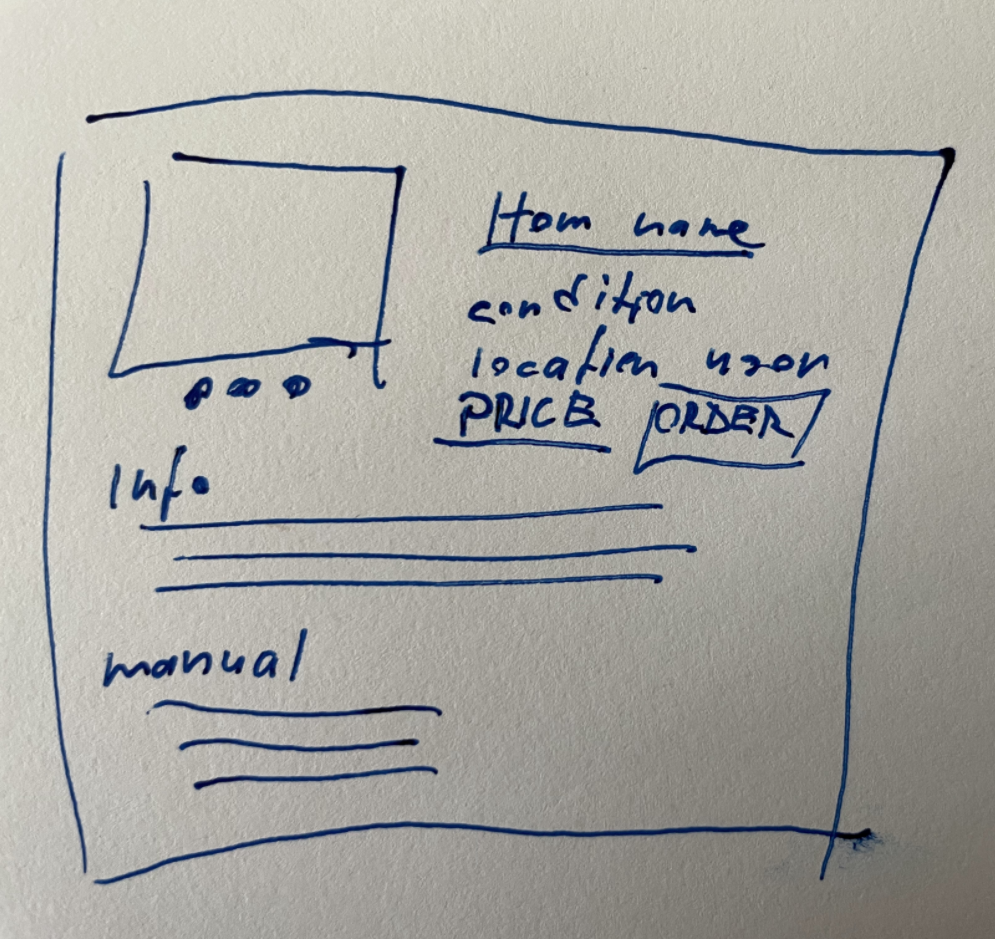 Item name
condition
location user
PRICE ORDER
Info
manual